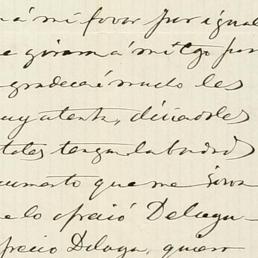 á mi favor por igual
e giram á mi cgo por
gradeceré mucho les
uy atenta, diciendoles
tales tengan la bondad
cumento que me sirva
e lo ofreció Delaga-
freció Delaga, quiero